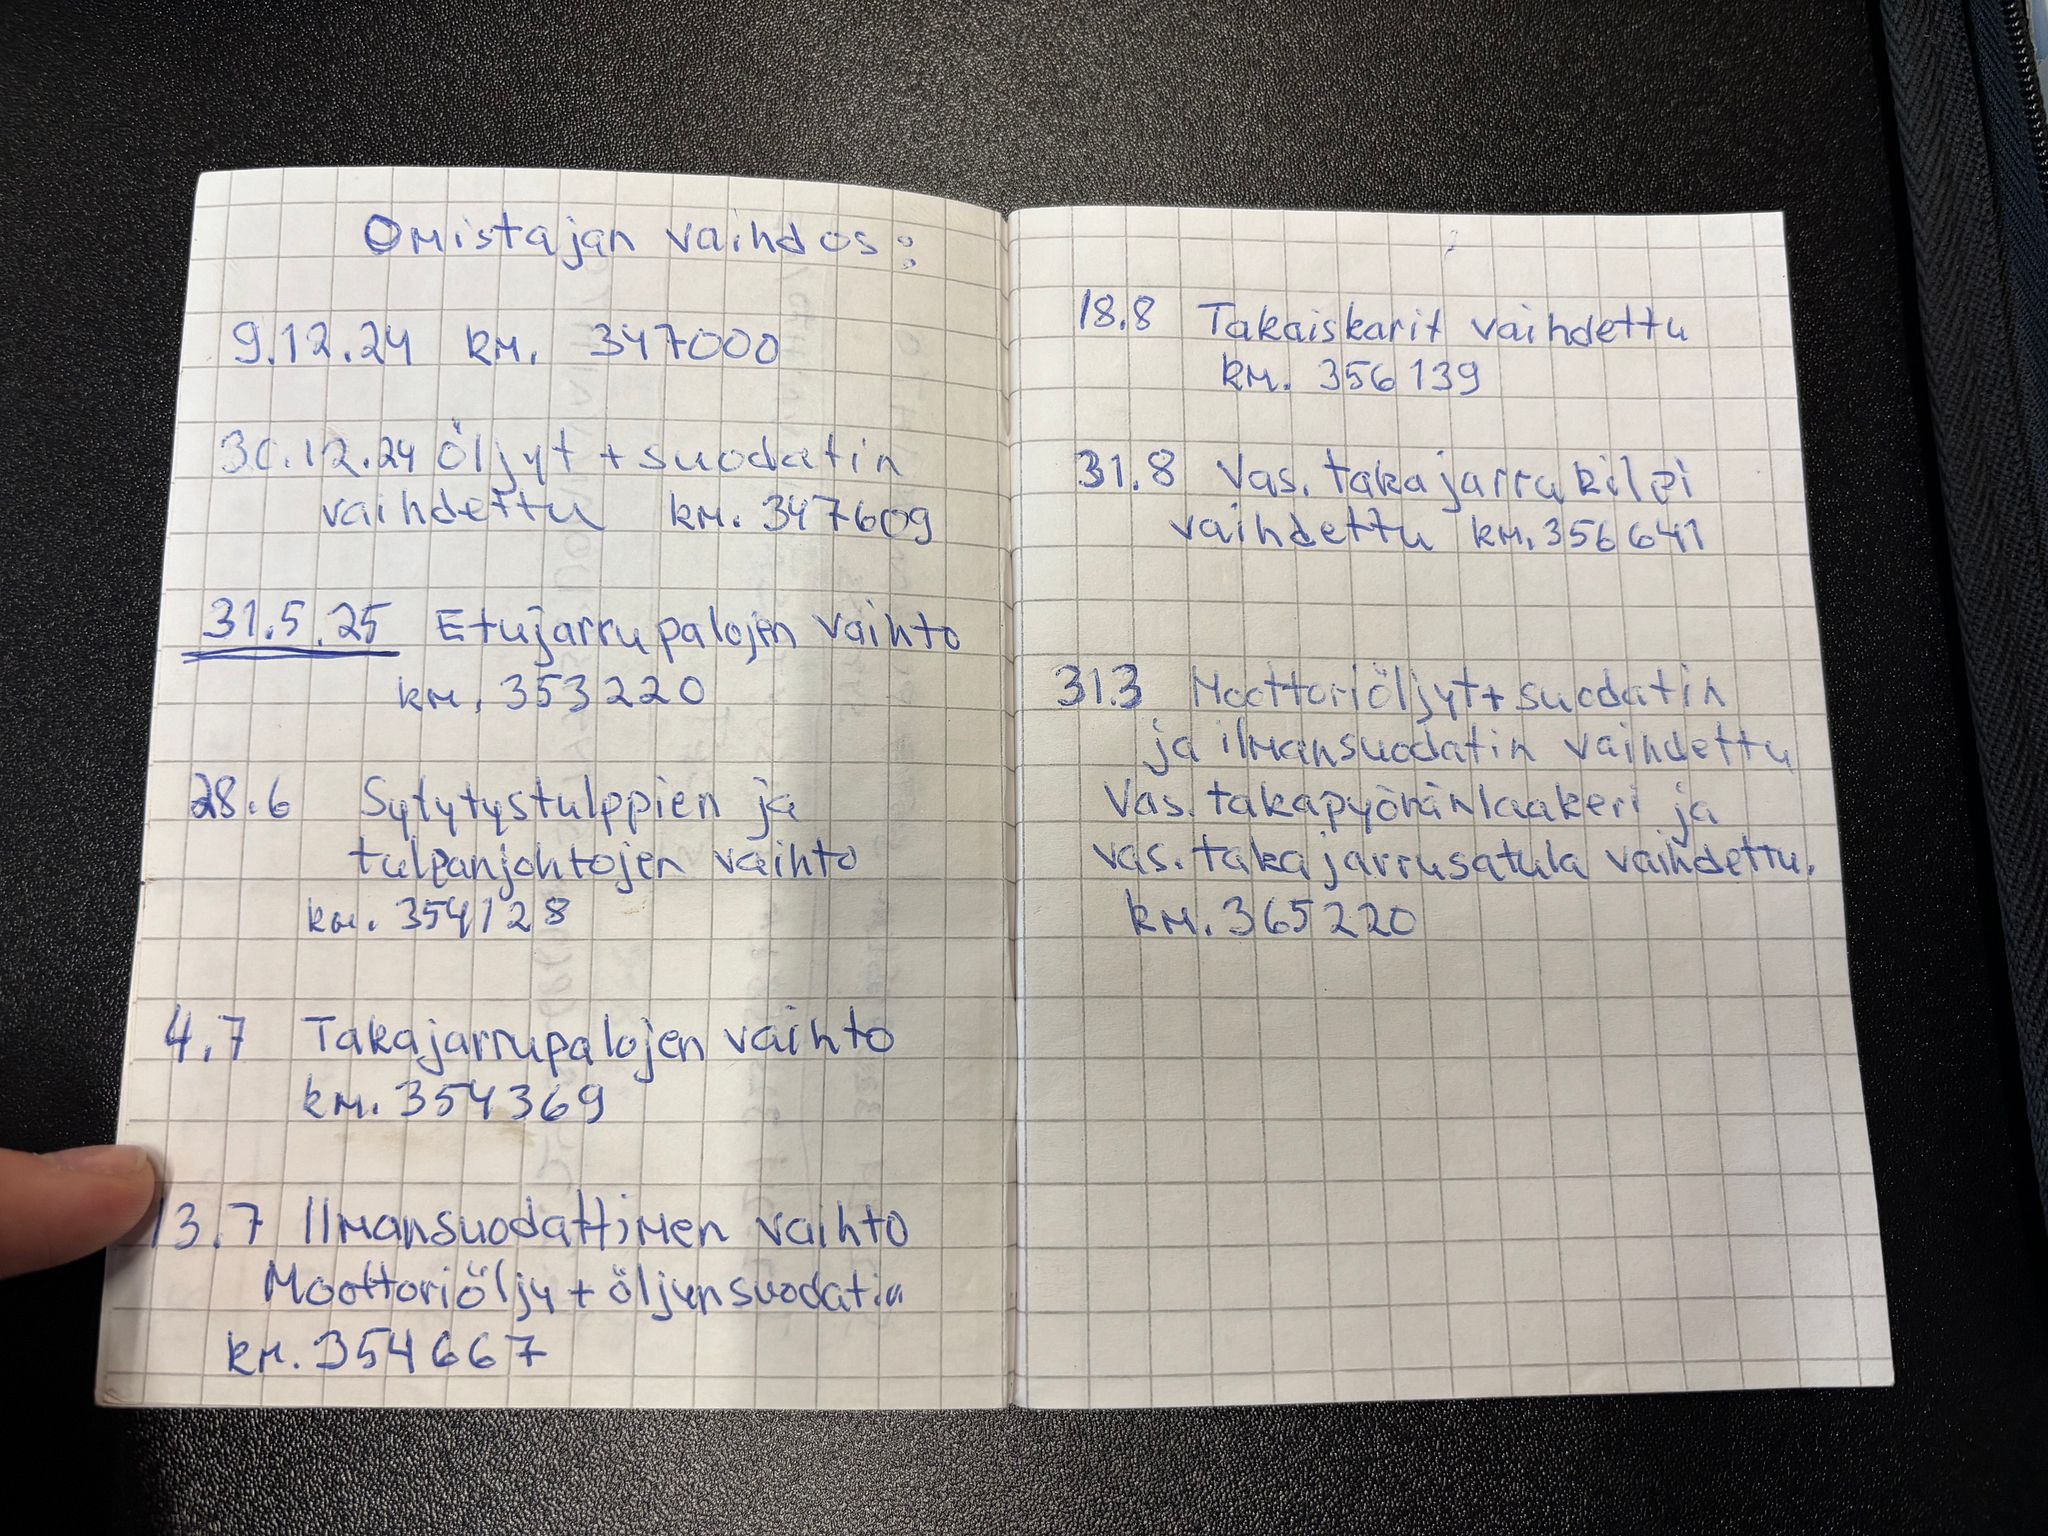 Omistajan vaihdos:
9.12.24 km. 347000
30.12.24 Öljyt + suodatin
vaihdettu km. 347609
31.5.25 Etujarrupalojen vaihto
km. 353220
28.6 Sytytystulppien ja
tulpanjohtojen vaihto
km. 354128
4.7 Takajarrupalojen vaihto
km. 354369
13.7 Ilmansuodattimen vaihto
Moottoriöljy + öljynsuodatin
km. 354667
18.8 Takaiskarit vaihdettu
km. 356139
31.8 Vas. takajarrukilpi
vaihdettu km. 356641
31.3 Moottoriöljyt + suodatin
ja ilmansuodatin vaihdettu
Vas. takapyöränlaakeri ja
vas. takajarrusatula vaihdettu.
km. 365220